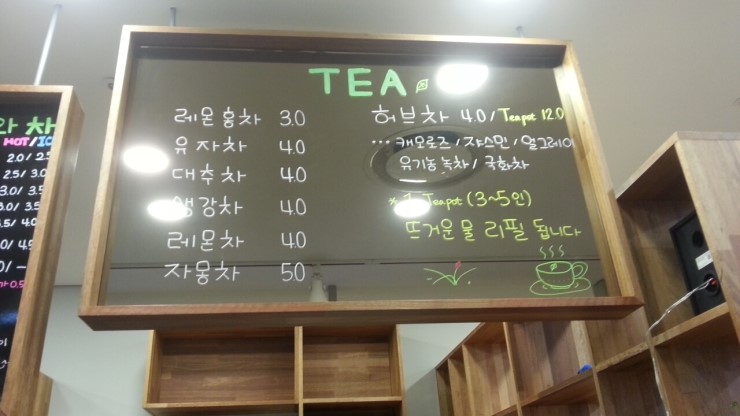 TEA
레몬홍차 3.0
유자차 4.0
대추차 4.0
생강차 4.0
레몬차 4.0
자몽차 5.0
허브차 4.0 / Teapot 12.0
… 캐모로즈 / 쟈스민 / 얼그레이
유기농 녹차 / 국화차
* 1 Teapot (3~5인)
뜨거운 물 리필 됩니다
차
HOT/IC
2.0/ 2.5
2.5/ 3.0
3.0/ 3.5